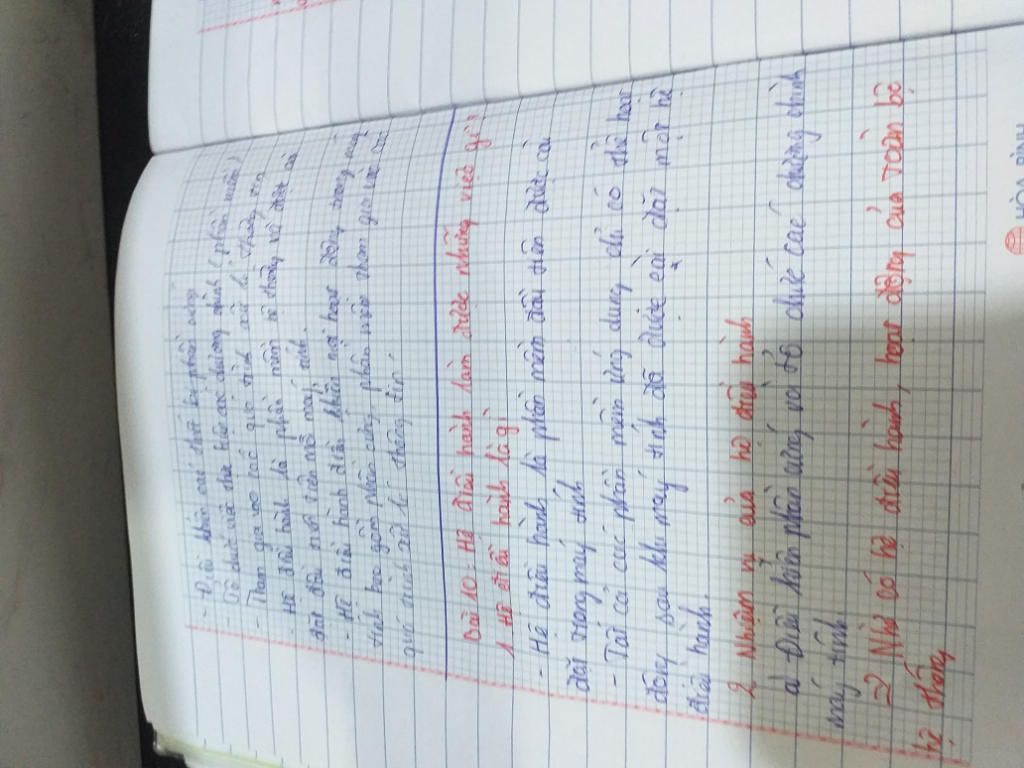 - Điều khiển các thiết bị phần cứng
- Tổ chức việc thực hiện các chương trình (phần mềm)
- Tham gia vào các quá trình xử lí thông tin
- Hệ điều hành là phần mềm hệ thống và được cài
đặt đầu tiên
- Hệ điều hành điều khiển mọi hoạt động trong máy
tính bao gồm phần cứng, phần mềm tham gia vào
quá trình xử lí thông tin
Bài 10: Hệ điều hành làm được những việc gì?
1. Hệ điều hành là gì
- Hệ điều hành là phần mềm đầu tiên được cài
đặt trong máy tính
- Tất cả các phần mềm ứng dụng chỉ có thể hoạt
động sau khi máy tính đã được cài đặt một hệ
điều hành.
2. Nhiệm vụ của hệ điều hành
a) Điều khiển phần cứng và tổ chức các chương trình
máy tính
=> Nhờ có hệ điều hành, hoạt động của toàn bộ
hệ thống
HÒA BÌNH